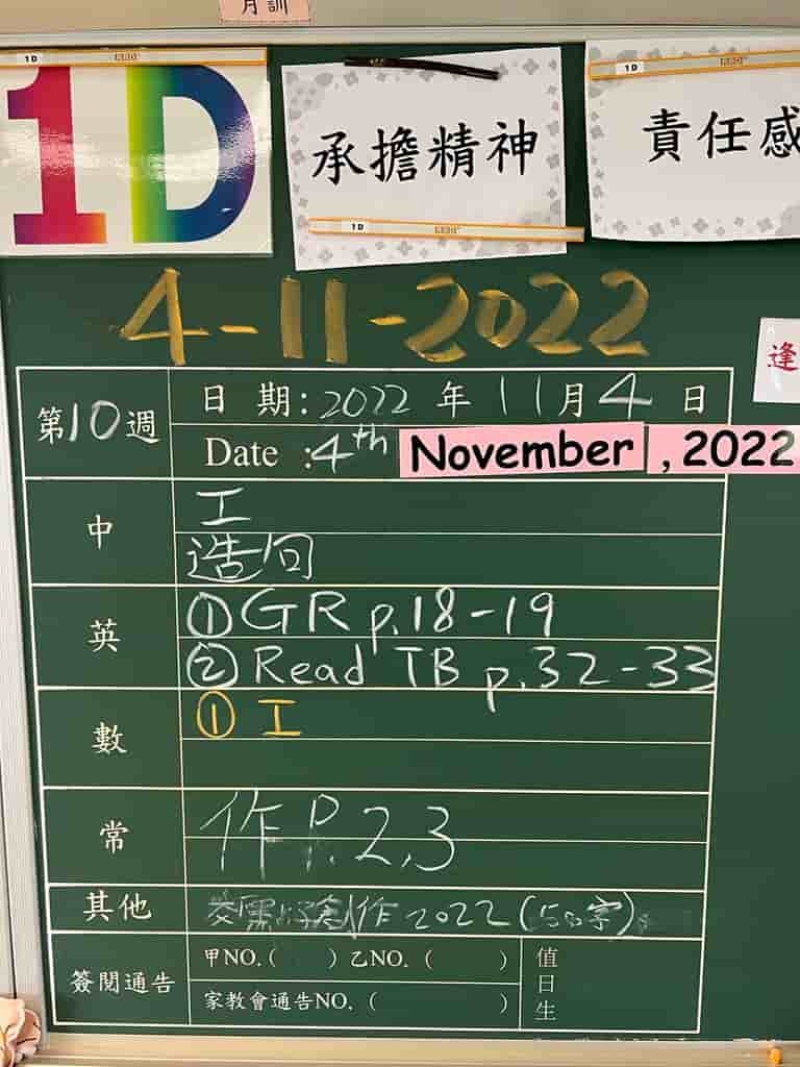 月訓
1D
1D
承擔精神
1D
1D
責任感
4-11-2022
逢
第10週
日期:2022年11月4日
Date :4th November , 2022
中
工
造句
英
①GR p.18-19
②Read TB p.32-33
數
① 工
常
作P.2,3
其他
創作2022(50字)。
簽閱通告
甲NO.( ) 乙NO. ( )
家教會通告NO. ( )
值日生